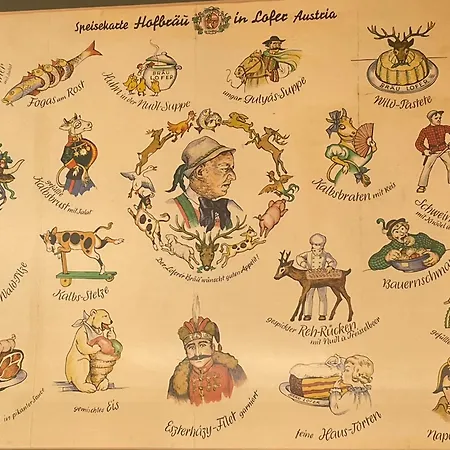 Speisekarte Hofbräu in Lofer Austria
Fogas am Rost
Hahn in der Nudl-Suppe
BRÄU
LOFER
ungar. Gulyás-Suppe
Wild-Pastete
BRÄU LOFER
Kalbsbrust mit Salat
Kalbsbraten mit Reis
Schwein
mit Knödl u.
Der Loferer-Bräu wünscht guten Appetit!
Kalbs-Stelze
gespickter Reh-Rücken
mit Nudl u. Preiselbeer
Bauernschma
in pikanter Sauce
gemischtes Eis
Eszterházy-Filet garniert
feine Haus-Torten
gefüllt
Nap